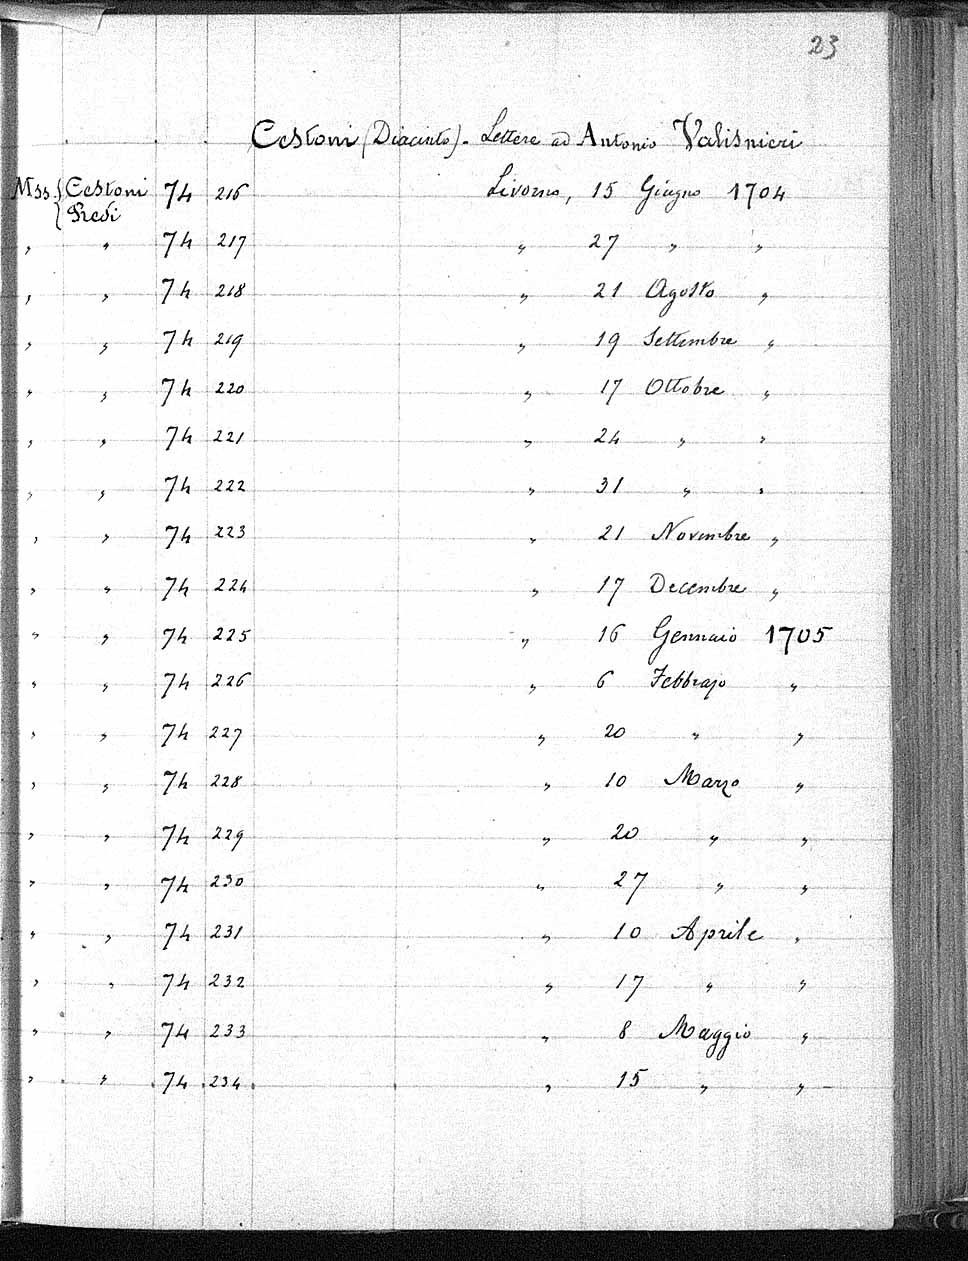 23
Cestoni (Diacinto). Lettere ad Antonio Valisnieri
Mss. { Cestoni 74 216 Livorno, 15 Giugno 1704
{ Redi
" " 74 217 " 27 " "
" " 74 218 " 21 Agosto "
" " 74 219 " 19 Settembre "
" " 74 220 " 17 Ottobre "
" " 74 221 " 24 " "
" " 74 222 " 31 " "
" " 74 223 " 21 Novembre "
" " 74 224 " 17 Decembre "
" " 74 225 " 16 Gennaio 1705
" " 74 226 " 6 Febbrajo "
" " 74 227 " 20 " "
" " 74 228 " 10 Marzo "
" " 74 229 " 20 " "
" " 74 230 " 27 " "
" " 74 231 " 10 Aprile "
" " 74 232 " 17 " "
" " 74 233 " 8 Maggio "
" " 74 234 " 15 " "